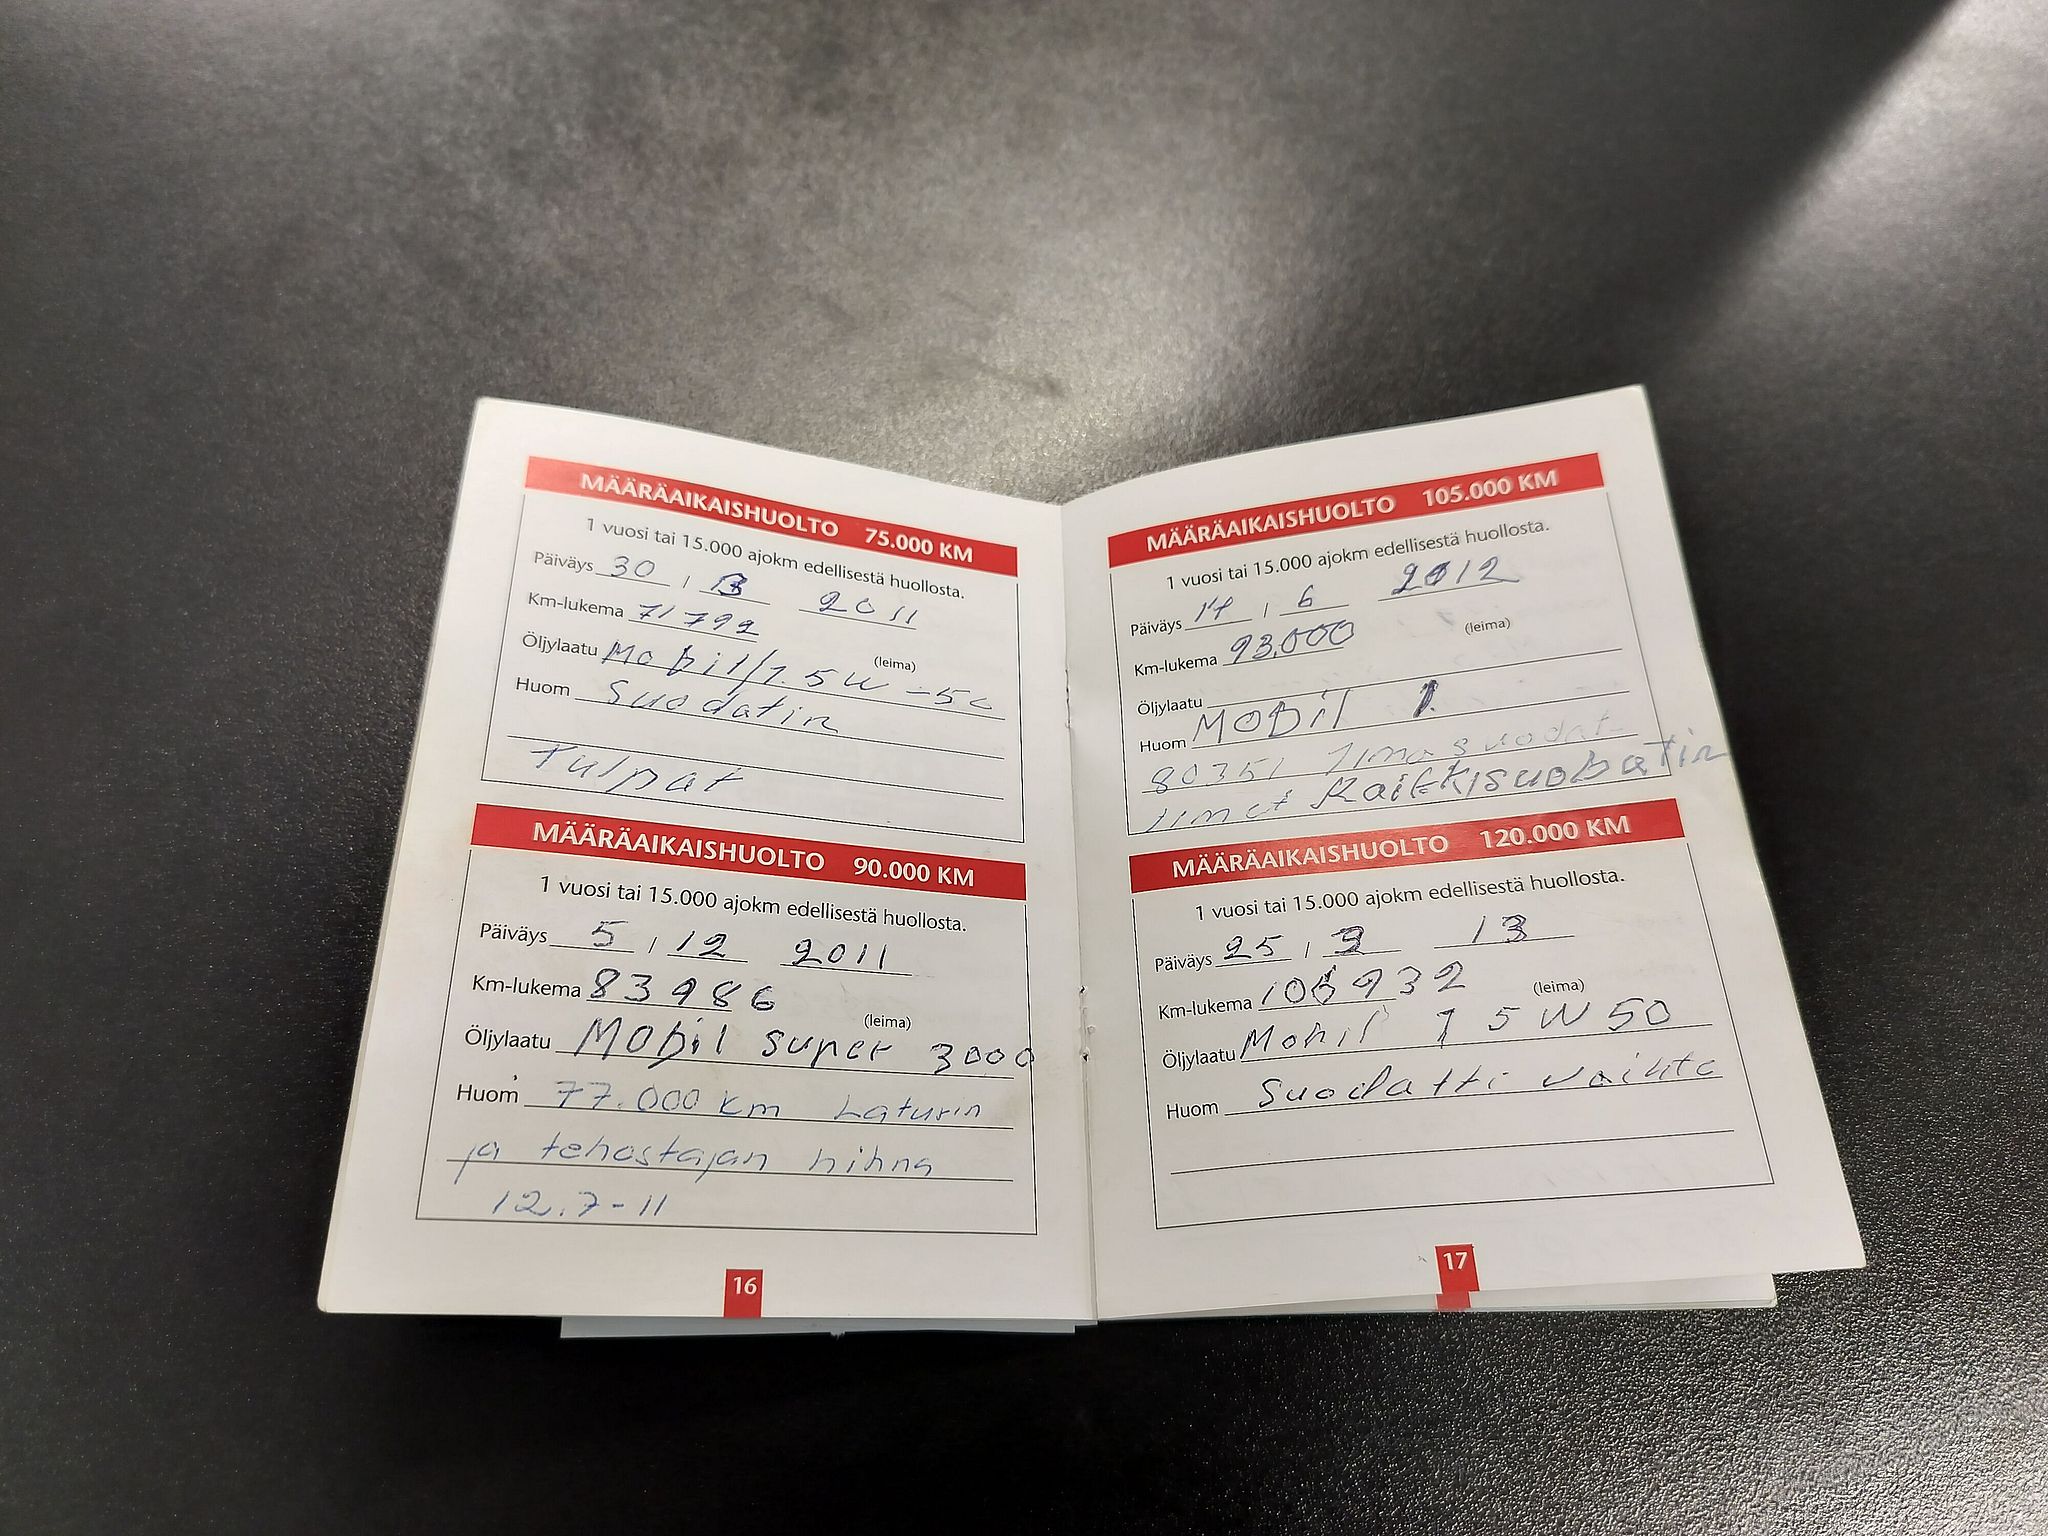 MÄÄRÄAIKAISHUOLTO 75.000 KM
1 vuosi tai 15.000 ajokm edellisestä huollosta.
Päiväys 30 / 2011
Km-lukema 71792
(leima)
Öljylaatu Mobil/1. 5W-50
Huom Suodatin
Tulpat
MÄÄRÄAIKAISHUOLTO 90.000 KM
1 vuosi tai 15.000 ajokm edellisestä huollosta.
Päiväys 5 / 12 2011
Km-lukema 83986
(leima)
Öljylaatu Mobil super 3000
Huom 77.000 km Laturin
ja tehostajan hihna
12.7-11
16
MÄÄRÄAIKAISHUOLTO 105.000 KM
1 vuosi tai 15.000 ajokm edellisestä huollosta.
Päiväys 14 / 6 2012
Km-lukema 93.000
(leima)
Öljylaatu
Huom MOBil 1
80351 Ilmasuodat
timet KaikkisuoDatin
MÄÄRÄAIKAISHUOLTO 120.000 KM
1 vuosi tai 15.000 ajokm edellisestä huollosta.
Päiväys 25 / 13
Km-lukema 106932
(leima)
Öljylaatu Mobil 1 5W50
Huom Suodatti vaihto
17